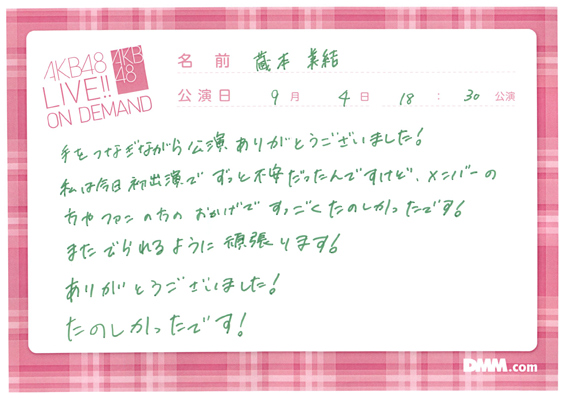 AKB48
LIVE!!
ON DEMAND
AKB
48
名前 蔵本 美結
公演日 9月 4日 18:30 公演
手をつなぎながら公演ありがとうございました!
私は今日初出演でずっと不安だったんですけど、メンバーの
方やファンの方のおかげですっごくたのしかったです!
またでられるように頑張ります!
ありがとうございました!
たのしかったです!
DMM.com